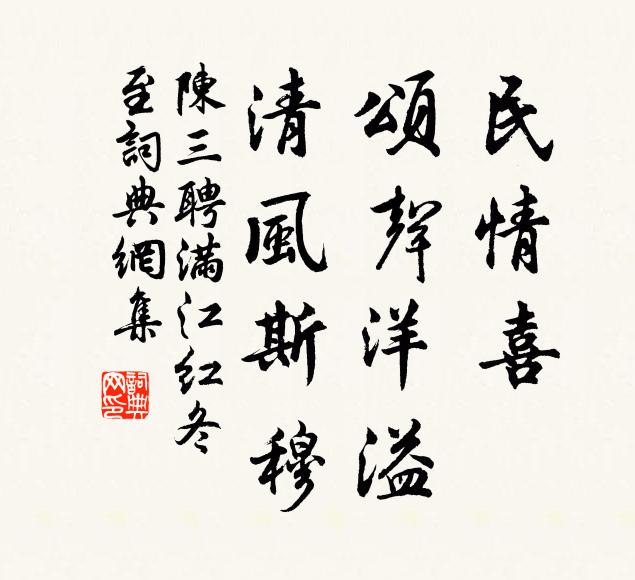 民情喜
頌聲洋溢
清風斯穆
陳三聘滿江紅冬
至詞典網集
詞典
网印